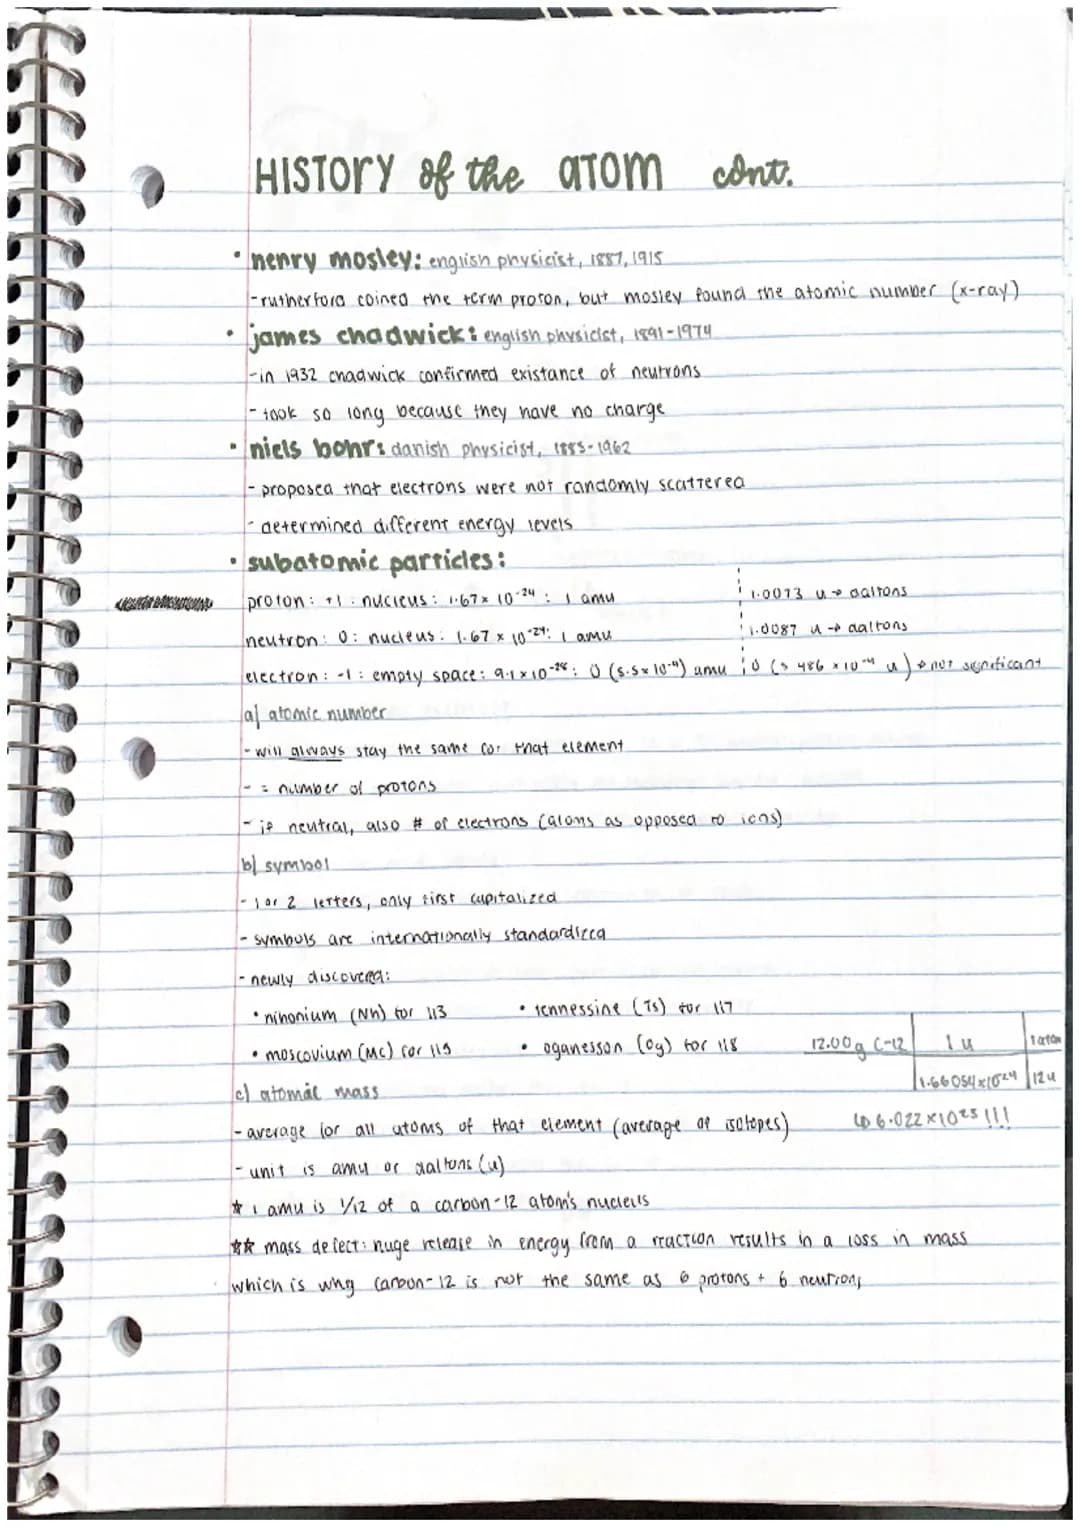 HISTORY of the atom cont.
• henry mosley: english physicist, 1887, 1915
- rutherford coined the term proton, but mosley found the atomic number (x-ray)
• james chadwick: english physicist, 1891-1974
- in 1932 chadwick confirmed existance of neutrons
- took so long because they have no charge
• niels bohr: danish physicist, 1885-1962
- proposed that electrons were not randomly scattered
- determined different energy levels
• subatomic particles:
proton: +1: nucleus: 1.67 x 10⁻²⁴: 1 amu 1.0073 u → daltons
neutron: 0: nucleus: 1.67 x 10⁻²⁴: 1 amu 1.0087 u → daltons
electron: -1: empty space: 9.1 x 10⁻²⁸: 0 (5.5 x 10⁻⁴) amu 0 (5.486 x 10⁻⁴ u) → not significant
a) atomic number
- will always stay the same for that element
- = number of protons
- if neutral, also # of electrons (atoms as opposed to ions)
b) symbol
- 1 or 2 letters, only first capitalized
- symbols are internationally standardized
- newly discovered:
• nihonium (Nh) for 113 • tennessine (Ts) for 117
• moscovium (Mc) for 115 • oganesson (Og) for 118
12.00g C-12 | 1 u | 1 atom
1.66054 x 10²⁴ | 12u
c) atomic mass
- average for all atoms of that element (average of isotopes) ↳ 6.022 x 10²³ !!!
- unit is amu or daltons (u)
* 1 amu is 1/12 of a carbon-12 atom's nucleus
** mass defect: huge release in energy from a reaction results in a loss in mass
which is why carbon-12 is not the same as 6 protons + 6 neutrons